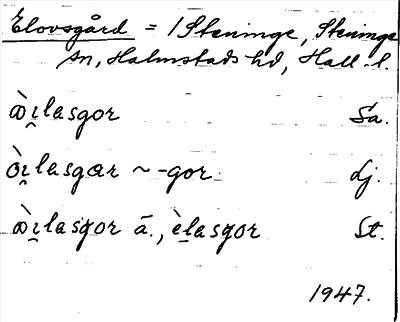 Elovsgård = 1 Steninge, Steninge
sn, Halmstads hd, Hall. l.
æ̀ı̯lasgor Sa.
òı̯lasgær ~ -gor Lj.
æ̀ı̯lasgor ä., èlasgor St.
1947.